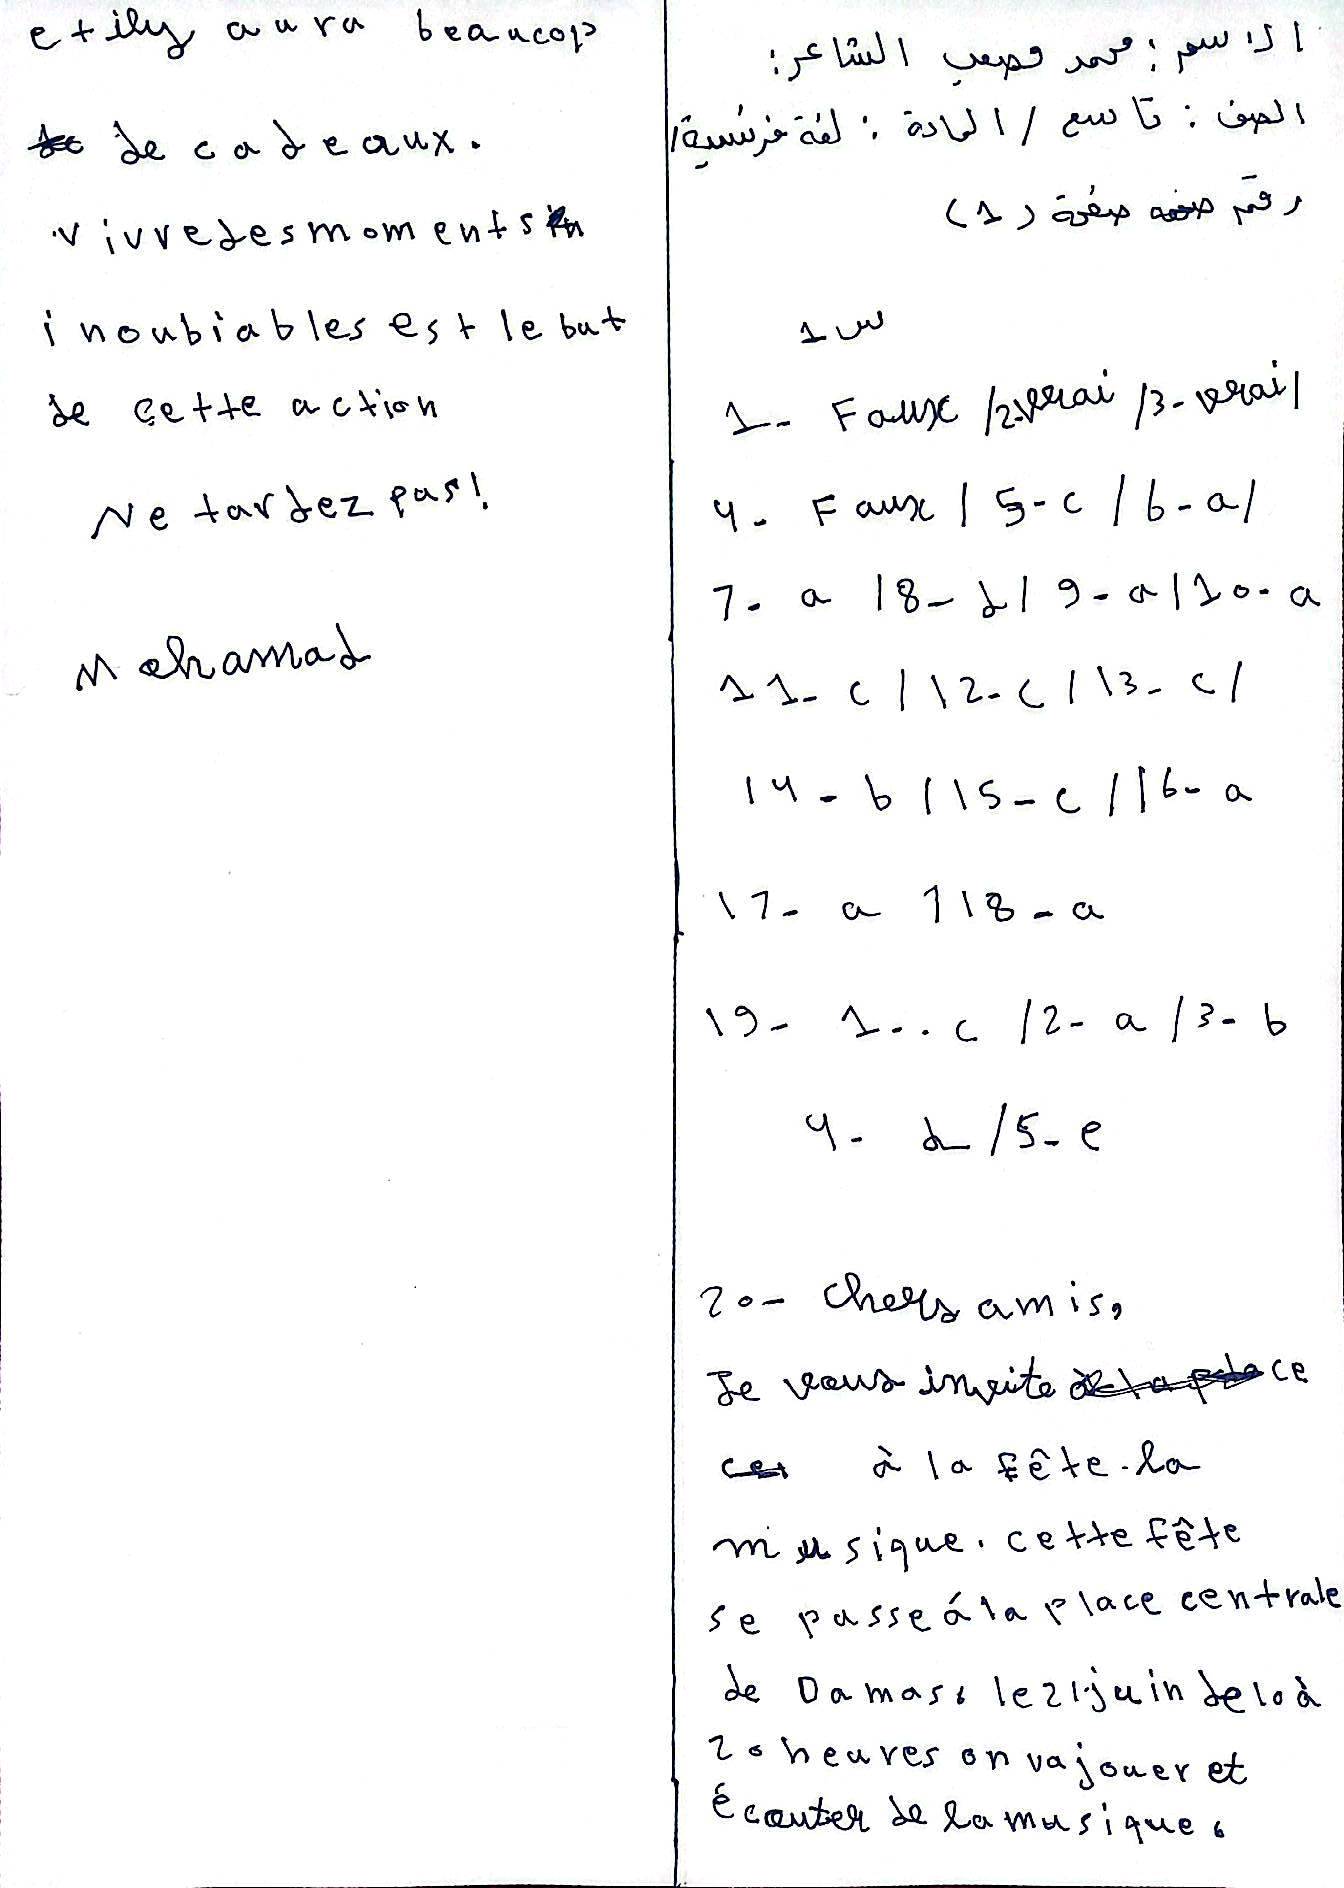 الاسم : محمد مصعب الشاعر :
الصف : تاسع / المادة : لغة فرنسية /
رقم صفحة (1)
س 1
1- Faux /2-vrai /3-vrai/
4- Faux / 5-c / 6-a/
7- a /8-d/ 9-a/10-a
11-c / 12-c / 13-c/
14-b / 15-c / 16-a
17-a / 18-a
19- 1-.c /2-a /3-b
4-d /5-e
20- chers amis,
Je vous invite
à la fête.la
musique. cette fête
se passe á la place centrale
de Damas, le 21 juin de 10 à
20 heures on va jouer et
écouter de la musique.
et ily aura beaucop
de cadeaux.
vivre des moments
inoubiables est le but
de cette action
Ne tardez pas!
Mohamad